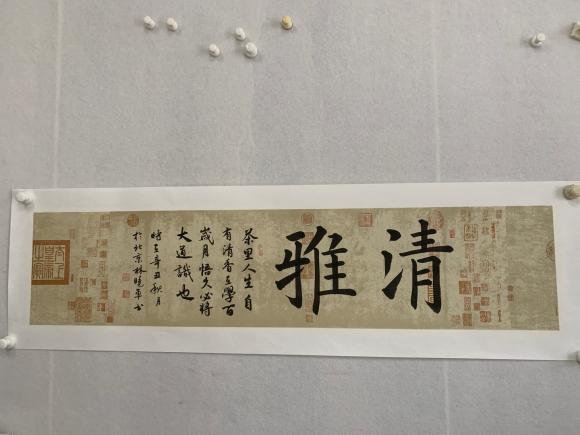 清雅
茶里人生自
有清香互學百
歲月悟久必將
大道識也
時在辛丑秋月
於北京林曉軍書